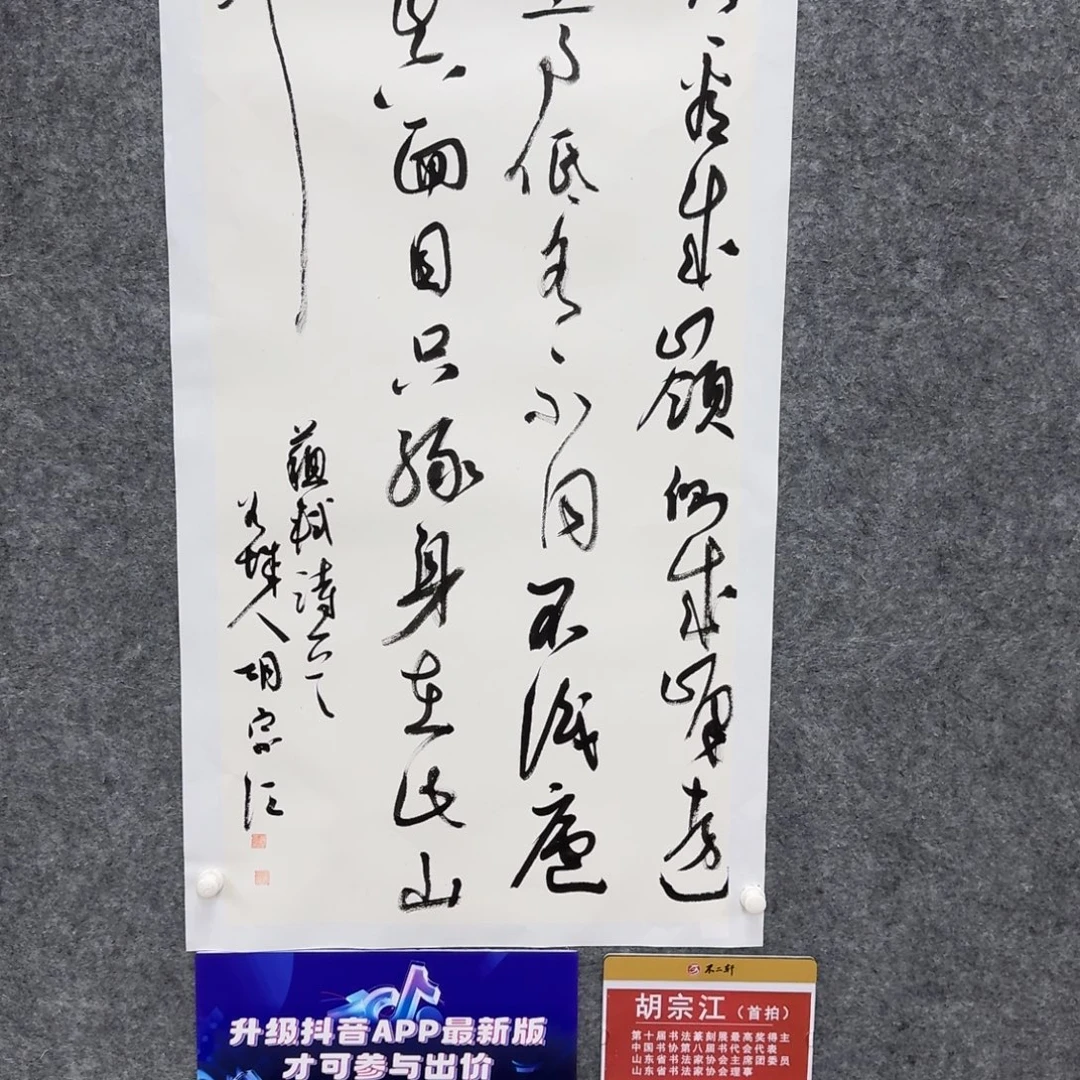 看成嶺側成峰遠
高低各不同不識廬
真面目只緣身在此山
蘇軾詩
城人胡宗江
升级抖音APP最新版
才可参与出价
不二轩
胡宗江（首拍）
第十届书法篆刻展最高奖得主
中国书协第八届书代会代表
山东省书法家协会主席团委员
山东省书法家协会理事